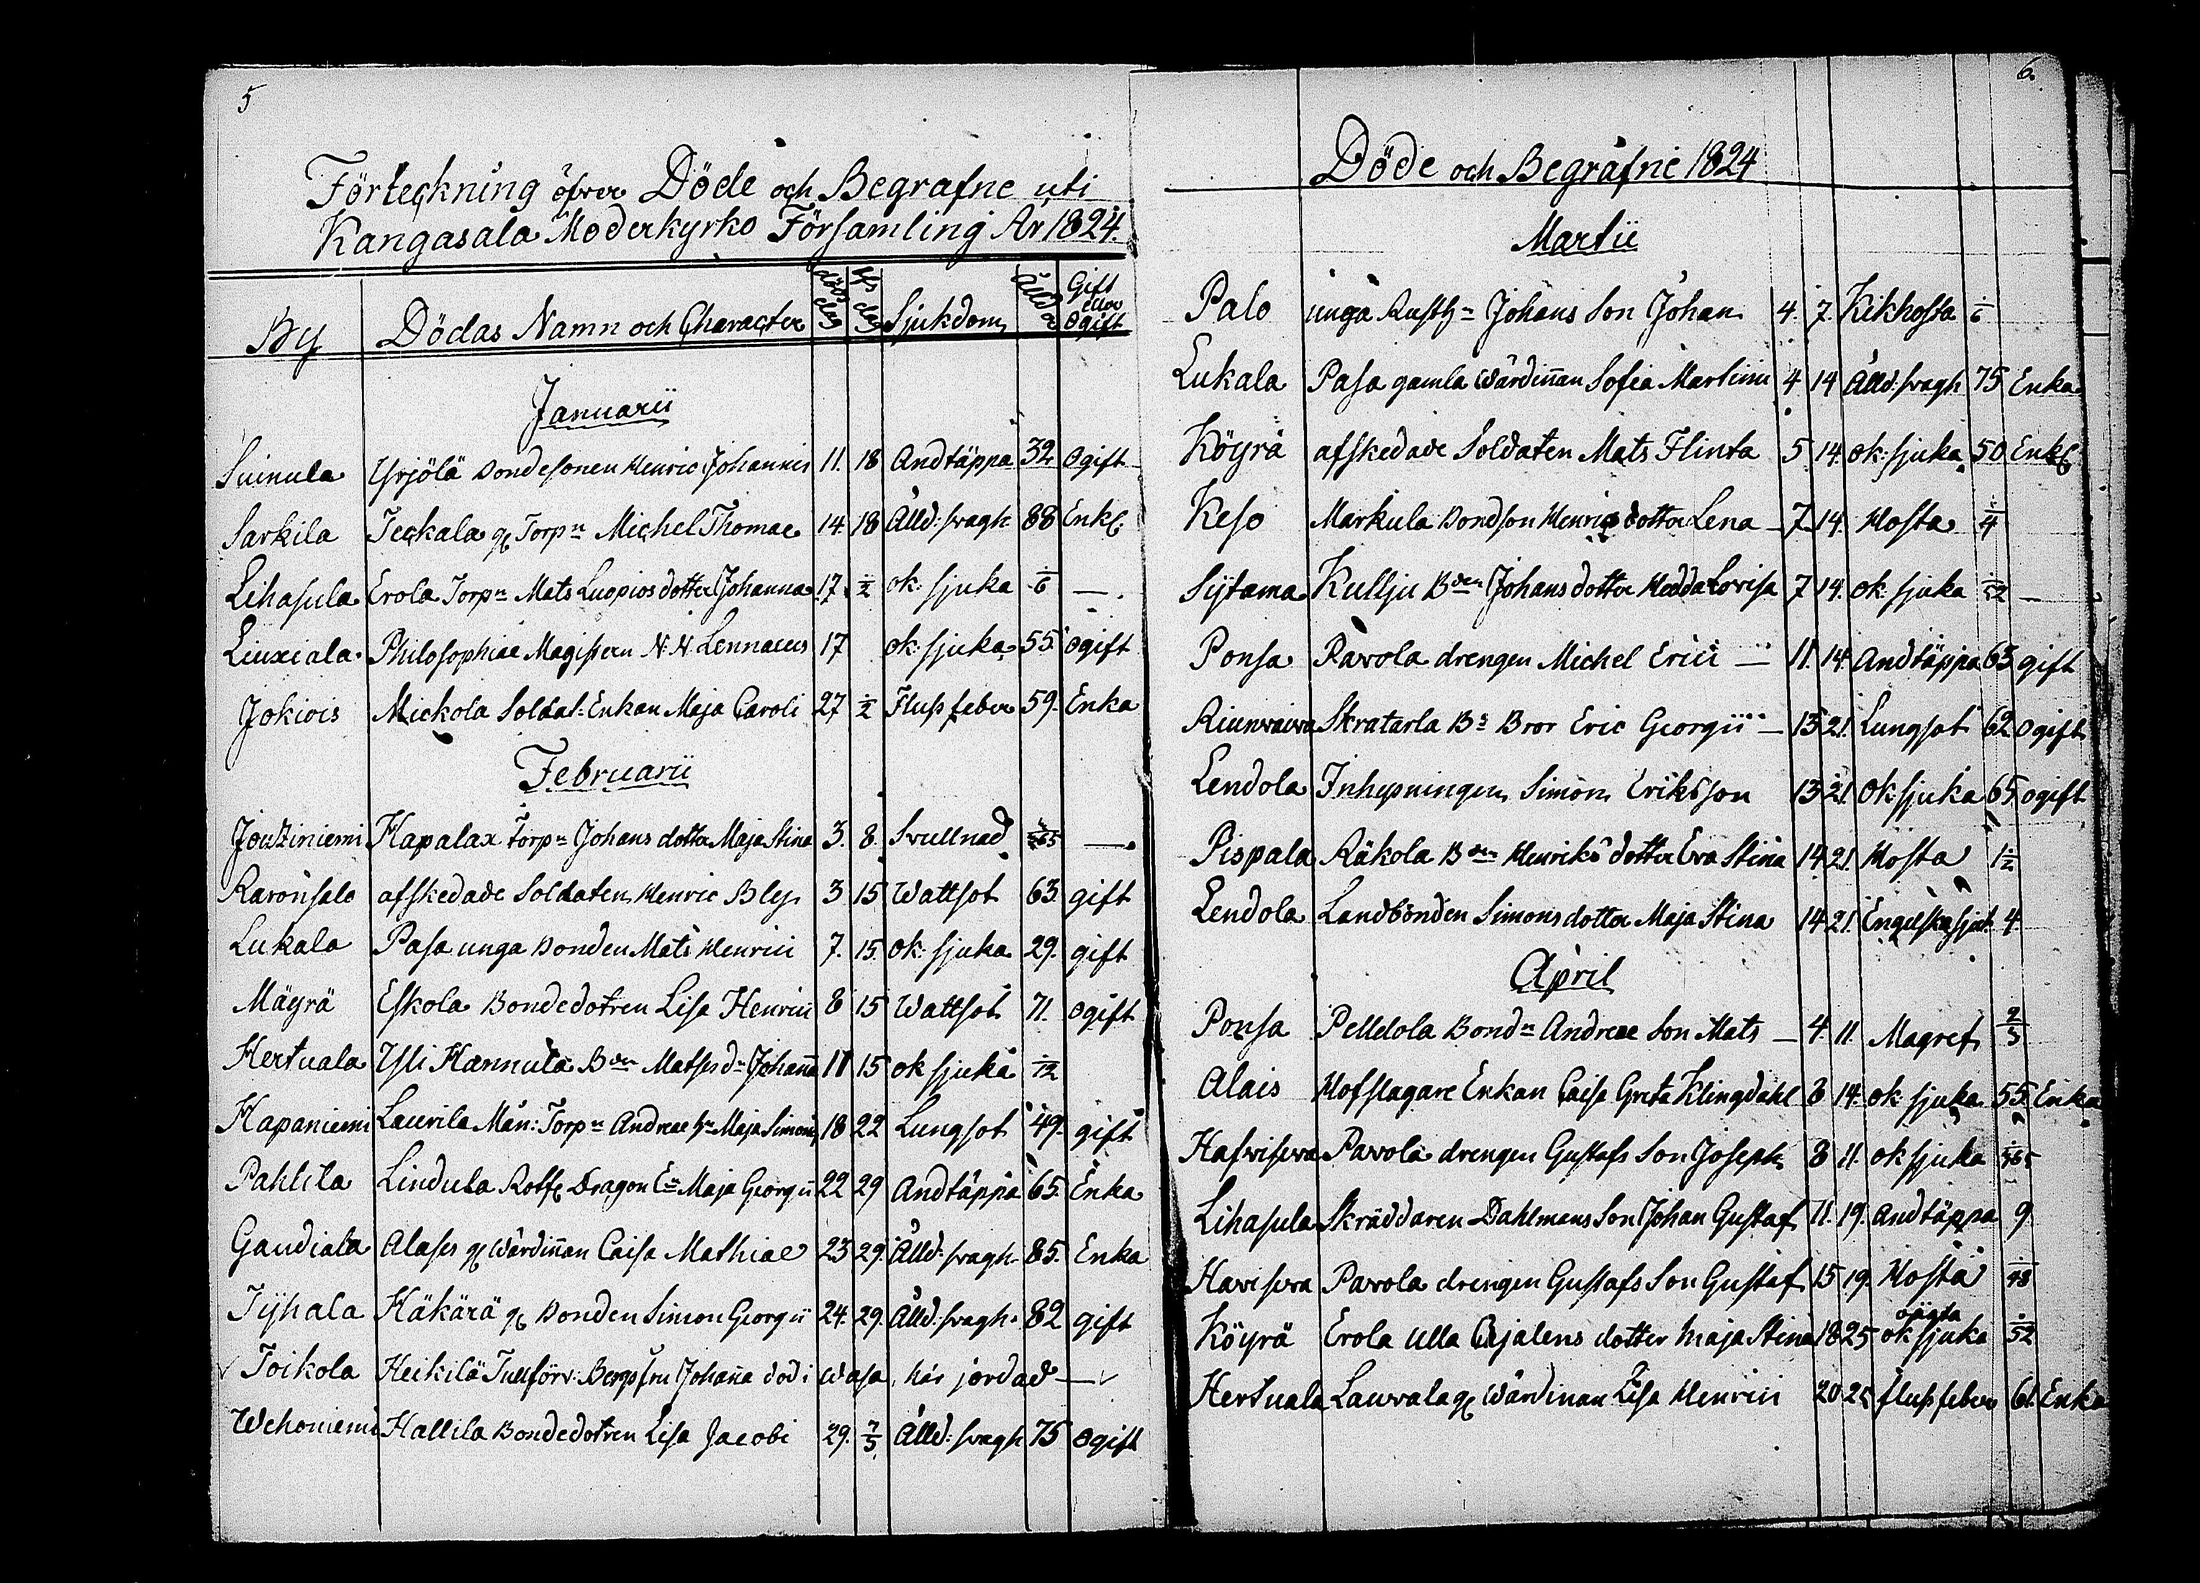 5
Förteckning öfver Döde och Begrafne uti
Kangasala Moderkyrko Församling År 1824.
By Dödas Namn och Character död dag dag Sjukdom Ållder Gift eller Ogift
Januarii
Suinula Yrjölä Bondesonen Henric Johannis 11. 18 Andtäppa 32 Ogift
Sarkila Teckala gl Torpn Michel Thomae 14. 18 Ålld: svagh 88 Enkl
Lihasula Erola Torpn Mats Luopios dotter Johanna 17. ÷/2 ok: sjuka ÷/6 —.
Liuxiala Philosophiae Magistern N. N. Lennaeus 17 ok: sjuka 55 Ogift
Jokiois Mickola Soldat-Enkan Maja Caroli 27 ÷/2 Fluss feber 59. Enka
Februarii
Jouziniemi Hapalax Torpn Johans dotter Maja Stina 3. 8. Svullnad ÷/365 —.
Raronsalo afskedade Soldaten Henric Bly 3 15 Wattsot 63 gift
Lukala Pasa unga Bonden Mats Henrici 7. 15. ok: sjuka 29. gift
Mäyrä Eskola Bondedotren Lisa Henrici 8 15 Wattsot 71. Ogift
Hertuala Yli Hannula Bden Matses dr Johaña 11 15 ok sjuka ÷/12
Hapaniemi Laurila Mån: Torpn Andreae hu Maja Simonis 18 22 Lungsot 49. gift
Pahlila Lindula Rolfs Dragon En Maja Georgii 22 29 Andtäppa 65. Enka
Gaudiala Alases gl Wärdiñan Caisa Mathiae 23 29. Ålld: svagh. 85. Enka
Tyhala Häkärä gl Bonden Simon Georgii 24. 29. Ålld: svagh. 82 gift
Toikola Heikilä Tullförv: Bergs fru Johaña död i Wasa, här jordad —
Wehoniemi Hallila Bondedotren Lisa Jacobi 29. 7/3 Ålld: svagh 75 Ogift
6.
Döde och Begrafne 1824
Martii
Palo unga Rusth- Johans Son Johan 4. 7. Kikhosta ÷/6
Lukala Pasa gamla Wärdiñan Sofia Martini 4 14 Ålld: svagh 75 Enka
Köyrä afskedade Soldaten Mats Flinta 5 14. ok: sjuka 50 Enkl
Keso Markula Bondson Henrics dotter Lena — 7 14. Hosta ÷/4
Sytama Kullju Bden Johans dotter Hedda Lovisa 7 14. ok: sjuka ÷/52 —
Ponsa Pavola drengen Michel Erici — 11. 14. Andtäppa 63 gift
Riunvaiva Skratarla Bs Bror Eric Georgii — 13 21. Lungsot 62 Ogift
Lendola Inhysningen Simon Eriksson 13 21. Ok: sjuka 65 ogift
Pispala Räkola Bden Henriks dotter Eva Stina 14 21. Hosta 1 ÷/2
Lendola Landbonden Simons dotter Maja Stina 14 21. Engelska sjuk: 4.
April
Ponsa Pellelola Bondn Andreae Son Mats — 4. 11. Magref 2/3
Alais Hofslagare Enkan Caisa Greta Klingdahl 8 14. ok: sjuka 55. Enka
Hafviseva Pavola drengen Gustafs Son Joseph 8 11. ok sjuka ÷/365
Lihasula Skräddaren Dahlmans Son Johan Gustaf 11. 19. Andtäppa 9
Haviseva Pavola drengen Gustafs Son Gustaf 15 19. Hosta ÷/48
Köyrä Erola Ulla Cajalens dotter Maja Stina 18 25 oägta ok sjuka ÷/52
Hertuala Lauvala gl Wärdinan Lisa Henrici 20 25 flussfeber 61. Enka